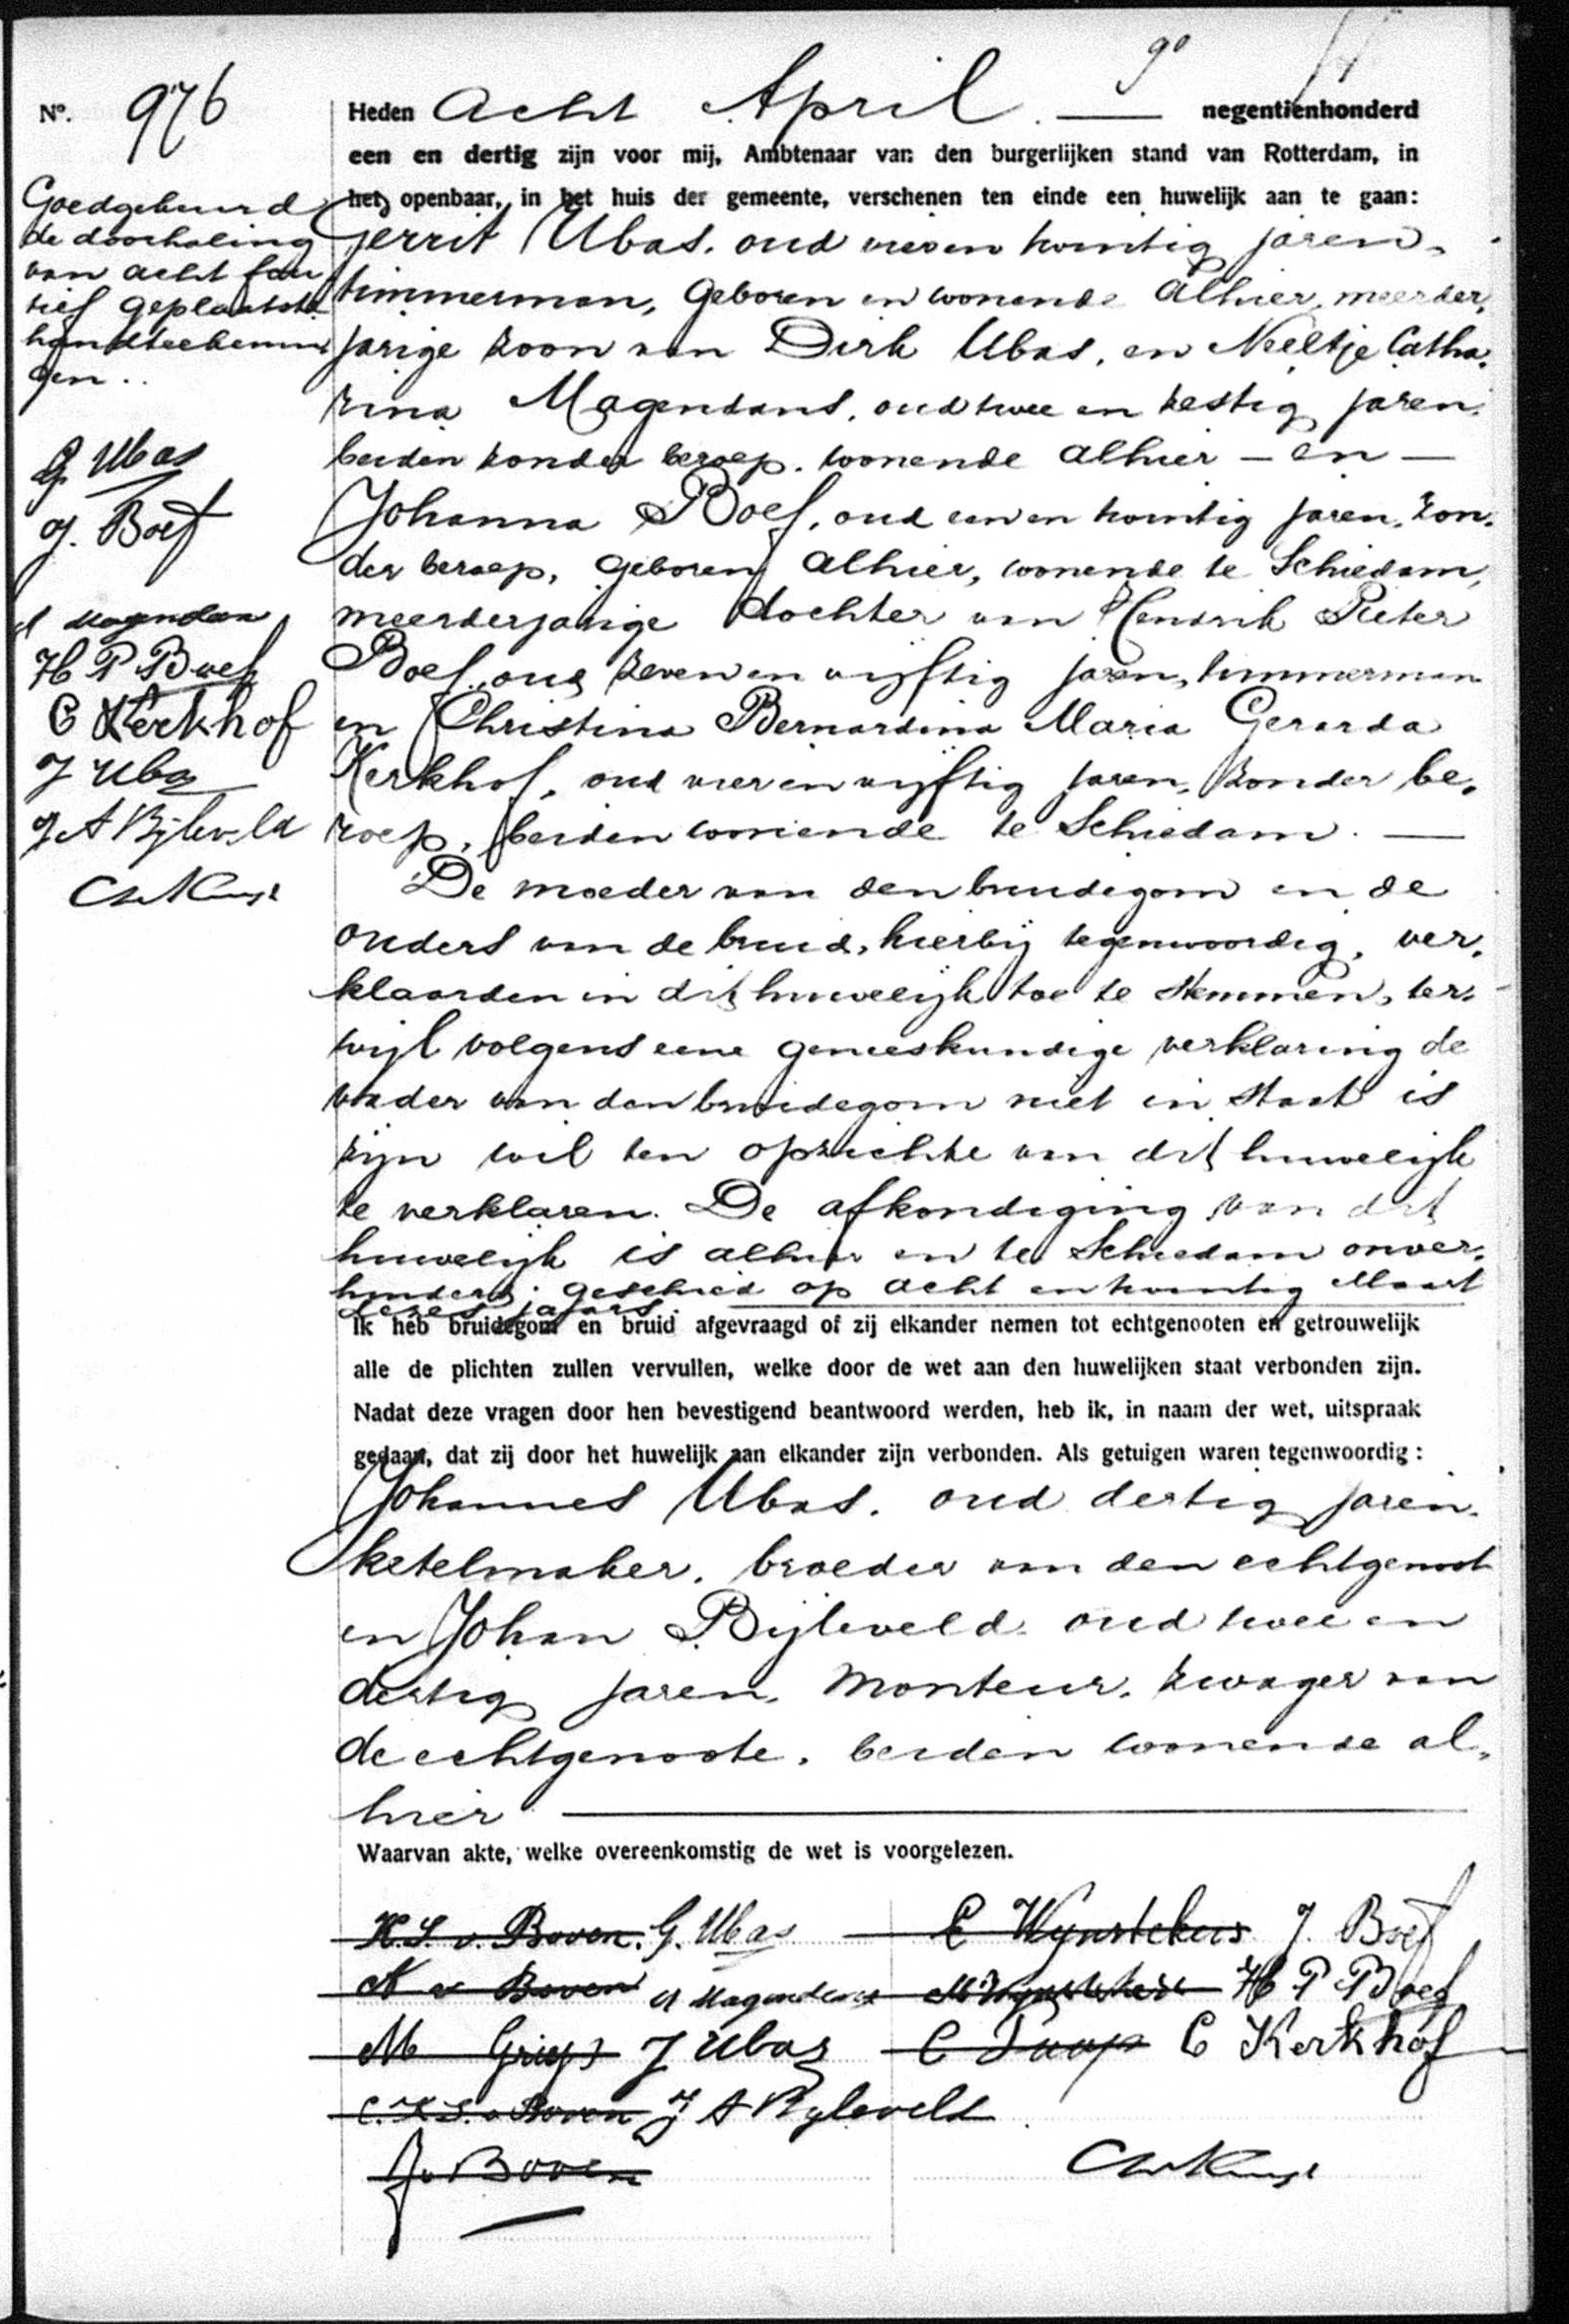 9°
N°. 976
Heden Acht April. — negentienhonderd
een en dertig zijn voor mij, Ambtenaar van den burgerlijken stand van Rotterdam, in
het openbaar, in het huis der gemeente, verschenen ten einde een huwelijk aan te gaan:
Gerrit Ubas, oud vier en twintig jaren,
timmerman, geboren en wonende alhier, meerder,
jarige zoon van Dirk Ubas, en Neeltje Catha,
rina Magendans, oud twee en zestig jaren,
beiden zonder beroep, wonende alhier — en —
Johanna Boef, oud een en twintig jaren, zon,
der beroep, geboren alhier, wonende te Schiedam,
meerderjarige dochter van Hendrik Pieter
Boef, oud zeven en vijftig jaren, timmerman
en Christina Bernardina Maria Gerarda
Kerkhof, oud vier en vijftig jaren, zonder be,
roep, beiden wonende te Schiedam. —
De moeder van den bruidegom en de
ouders van de bruid, hierbij tegenwoordig, ver,
klaarden in dit huwelijk toe te stemmen, ter,
wijl volgens eene geneeskundige verklaring de
vader van den bruidegom niet in staat is
zijn wil ten opzichte van dit huwelijk
te verklaren. De afkondiging van dit
huwelijk is alhier en te Schiedam onver,
hinderd geschied op acht en twintig Maart
dezes jaars. —
Ik heb bruidegom en bruid afgevraagd of zij elkander nemen tot echtgenooten en getrouwelijk
alle de plichten zullen vervullen, welke door de wet aan den huwelijken staat verbonden zijn.
Nadat deze vragen door hen bevestigend beantwoord werden, heb ik, in naam der wet, uitspraak
gedaan, dat zij door het huwelijk aan elkander zijn verbonden. Als getuigen waren tegenwoordig:
Johannes Ubas, oud dertig jaren,
ketelmaker, broeder van den echtgenoot
en Johan Bijleveld, oud twee en
dertig jaren, monteur, zwager van
de echtgenoote, beiden wonende al,
hier —
Waarvan akte, welke overeenkomstig de wet is voorgelezen.
H.S. v. Boven. G. Ubas E Wijnstekers J. Boef
v Boven Magendans H P Boef
M J Ubas C Kerkhof
C.H.S. v Boven J A Bijleveld
J v Boven
Goedgekeurd
de doorhaling
van acht fau
tief geplaatste
handteekenin
gen..
G. Ubas
J. Boef
Magendans
H P Boef
C Kerkhof
J Ubas
J A Bijleveld